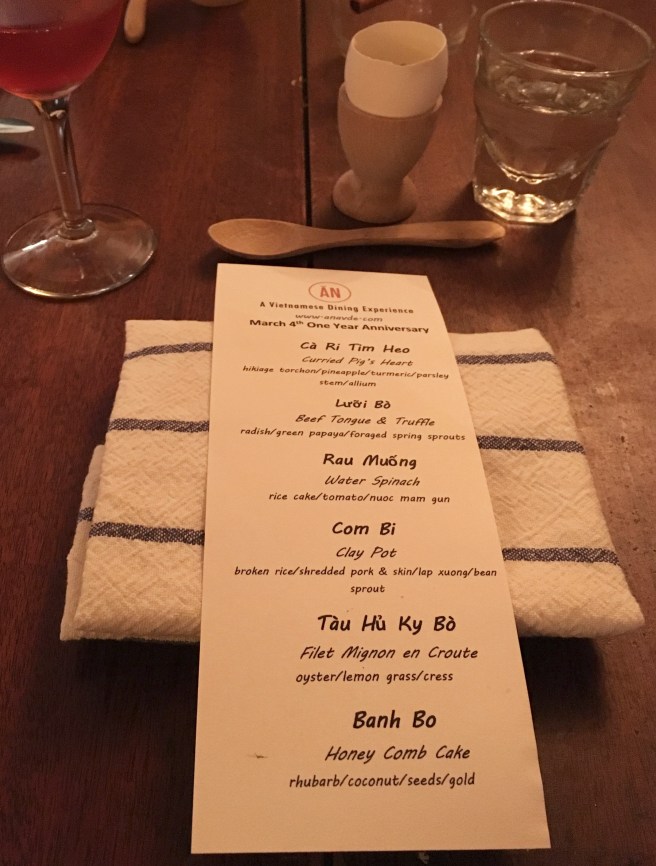 ĂN
A Vietnamese Dining Experience
www.anavde.com
March 4th One Year Anniversary
Cà Ri Tim Heo
Curried Pig's Heart
hikiage torchon/pineapple/turmeric/parsley
stem/allium
Lưỡi Bò
Beef Tongue & Truffle
radish/green papaya/foraged spring sprouts
Rau Muống
Water Spinach
rice cake/tomato/nuoc mam gun
Com Bi
Clay Pot
broken rice/shredded pork & skin/lap xuong/bean
sprout
Tàu Hủ Ky Bò
Filet Mignon en Croute
oyster/lemon grass/cress
Banh Bo
Honey Comb Cake
rhubarb/coconut/seeds/gold